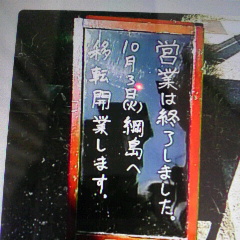 営業は終了しました。
10月3日㈫綱島へ
移転開業します。